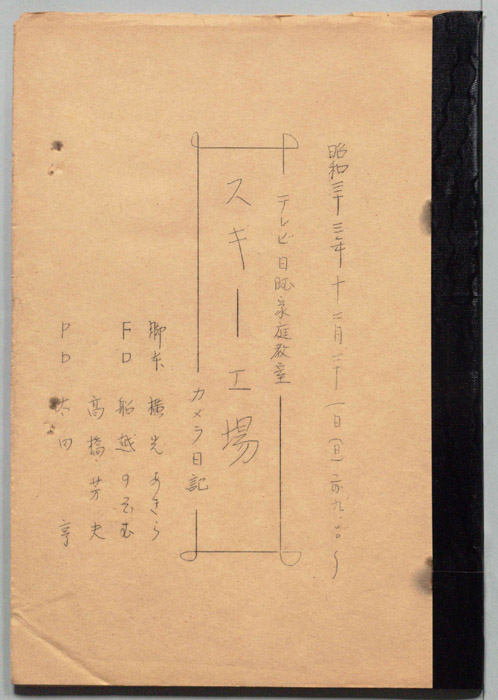 昭和三十三年 十二月二十一日(日)
テレビ日曜家庭教室
スキー工場
カメラ日記
脚本 横光あきら
FD 船越
高橋 芳
PD 太田 亨